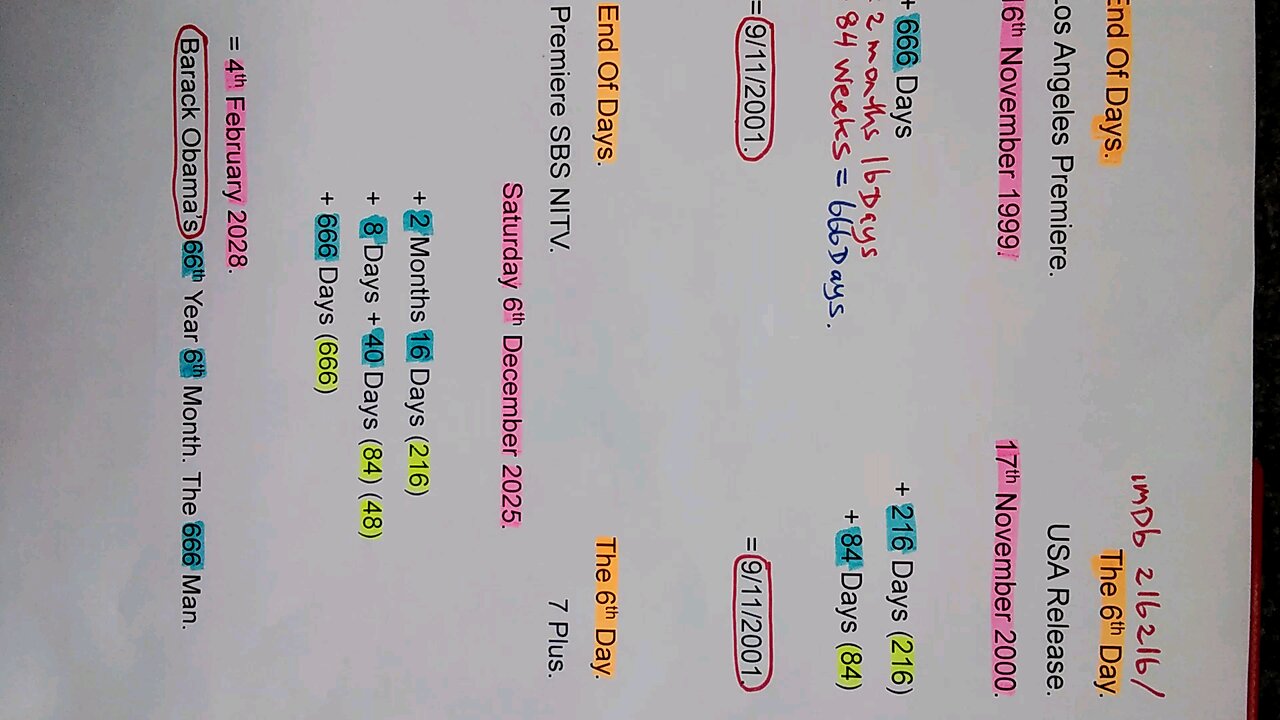 End Of Days.
Los Angeles Premiere.
16th November 1999.
+ 666 Days
2 months 16 Days
84 weeks = 666 Days.
= 9/11/2001.
IMDb 216216/
The 6th Day.
USA Release.
17th November 2000.
+ 216 Days (216)
+ 84 Days (84)
= 9/11/2001.
End Of Days.
Premiere SBS NITV.
The 6th Day.
7 Plus.
Saturday 6th December 2025.
+ 2 Months 16 Days (216)
+ 8 Days + 40 Days (84) (48)
+ 666 Days (666)
= 4th February 2028.
Barack Obama's 66th Year 6th Month. The 666 Man.